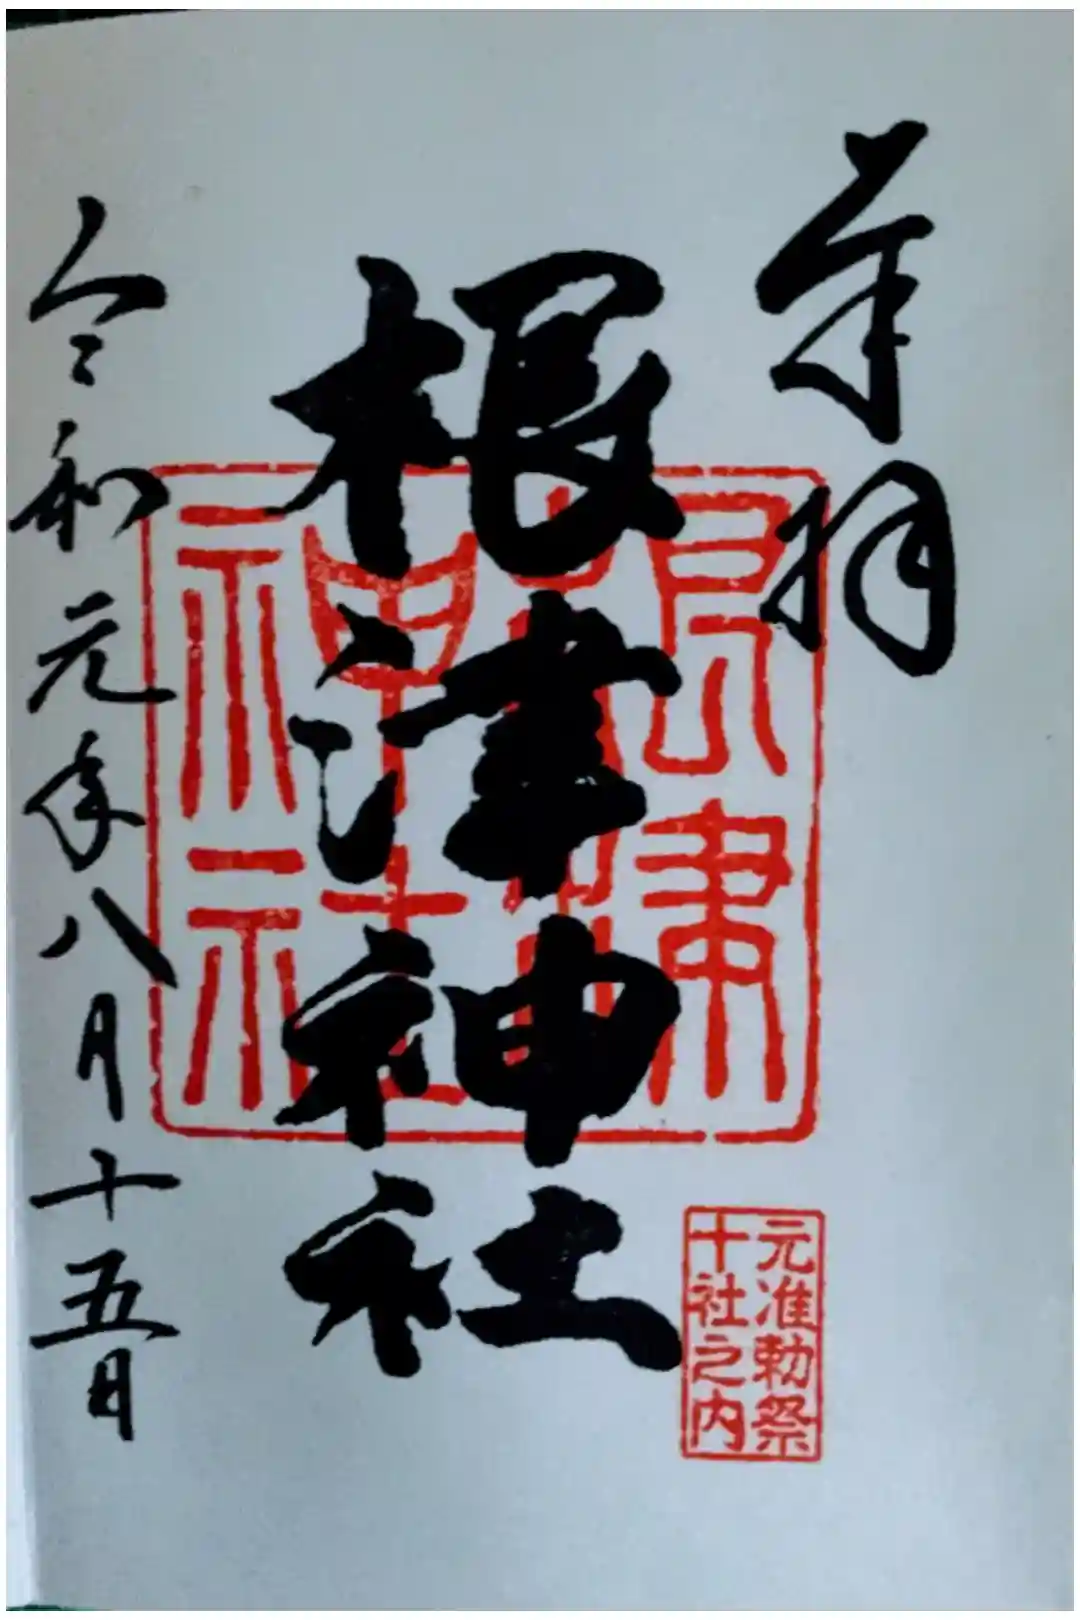 奉拝
根津神社
令和元年八月十五日
根津
神社
元准勅祭
十社之内